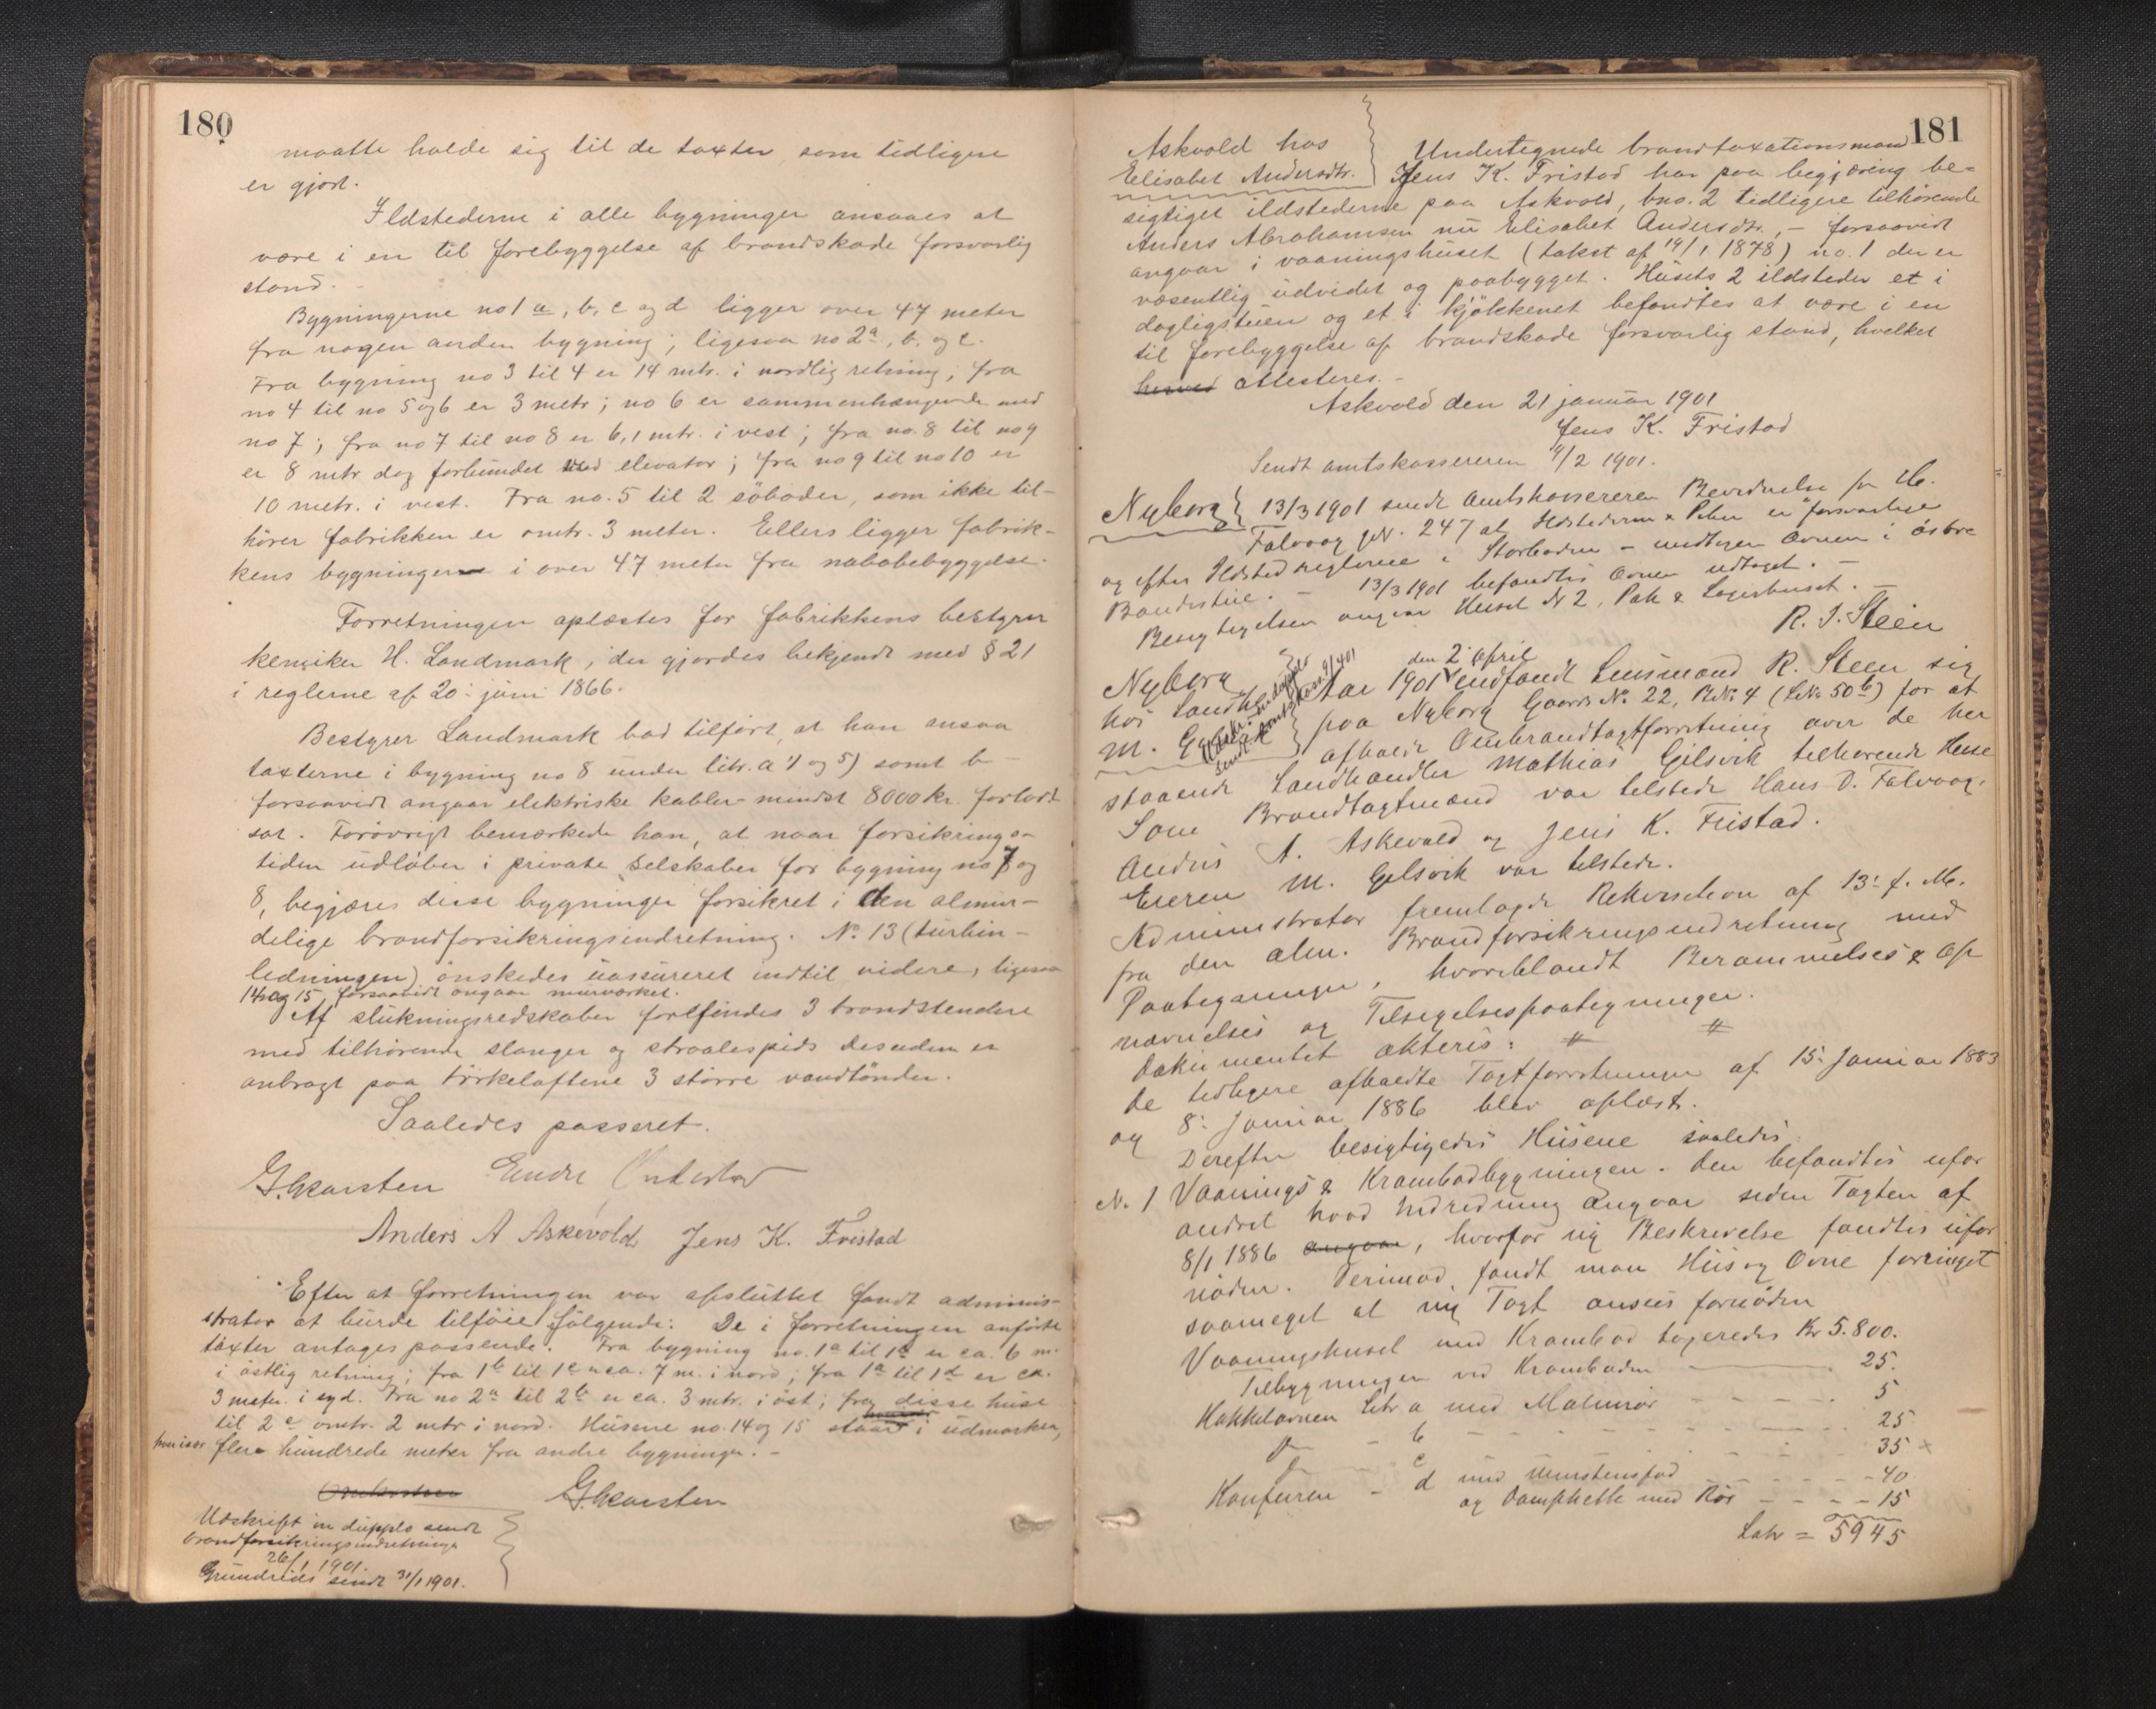 180
maatte holde sig til de taxter som tidligere
er gjort.
Ildstederne i alle bygninger ansaaes at
være i en til forebyggelse af brandskade forsvarlig
stand. -
Bygningerne no 1 a, b, c og d ligger over 47 meter
fra nogen anden bygning; ligesaa no 2a, b. og c.
Fra bygning no 3 til 4 er 14 mtr. i nordlig retning; fra
no 4 til no 5 og 6 er 3 metr; no 6 er sammenhængende med
no 7; fra no 7 til no 8 er 6,1 mtr. i vest; fra no. 8 til no 9
er 8 mtr dog forbundet med elevator; fra no 9 til no 10 er
10 metr. i vest. Fra no. 5 til 2 søboder, som ikke til-
hører fabrikken er omtr. 3 meter. Ellers ligger fabrik-
kens bygninger i over 47 meter fra nabobebyggelse.
Forretningen oplæstes for fabrikkens bestyrer
kemiker H. Landmark, der gjordes bekjendt med § 21
i reglerne af 20: juni 1866.
Bestyrer Landmark bad tilført, at han ansaa
taxterne i bygning no 8 under litr. a 1 og 5) samt b -
forsaavidt angaar elektriske kabler mindst 8000 kr. for lavt
sat. Forøvrigt bemærkede han, at naar forsikrings-
tiden udløber i private selskaber for bygning no 7 og
8, begjæres disse bygninger forsikret i den almin-
delige brandforsikringsindretning. No 13 (turbin-
ledningen) ønskedes uassureret indtil videre, ligesaa
14 og 15 forsaavidt angaar murværket.
Af slukningsredskaber forefindes 3 brandstendere
med tilhørende slanger og straalespids desuden er
anbragt paa tørkeloftene 3 større vandtønder.
Saaledes passeret.
G Karsten Endre
Anders A Askevold Jens K. Fristad
Efter at forretningen var afsluttet fandt adminis-
strator at burde tilføie følgende: De i forretningen anførte
taxter antages passende. Fra bygning no. 1a til 1b er ca. 6 m.
i østlig retning; fra 1b til 1c er ca. 7 m. i nord; fra 1a til 1d er ca.
3 meter. i syd. Fra no 2a til 2b er ca. 3 mtr. i øst; fra disse huse
til 2c omtr. 2 mtr i nord. Husene no. 14 og 15 staar i udmarken,
flere hundrede meter fra andre bygninger. -
G Karsten
Udskrift in duplo sendt
brandforsikringsindretningen
26/1 1901.
Grundrids sendt 31/1 1901.
181
Askvold hos
Elisabet Andersdtr.
Undertegnede brandtaxationsmand
Jens K. Fristad har paa begjæring be-
sigtiget ildstederne paa Askvold, bno. 2 tidligere tilhørende
Anders Abrahamsen nu Elisabet Andersdtr., - forsaavidt
angaar i vaaningshuset (takst af 14/1 1878) no. 1 der er
væsentlig udvidet og paabygget. Husets 2 ildsteder et i
dagligstuen og et i kjøkkenet befandtes at være i en
til forebyggelse af brandskade forsvarlig stand, hvilket
herved attesteres. -
Askvold den 21 januar 1901
Jens K. Fristad
Sendt amtskassereren 4/2 1901.
Nyborg
13/3 1901 sendt Amtskassereren Bevidnelse fr H.
Falvaag 247 at Ildstederne & Piber er forsvarlige
og efter Ildstedreglerne i Storboden - undtagen Ovnen i østre
Bondestue. - 13/3 1901 befandtes Ovnen udtaget. -
Besigtigelsen angaar Huset No 2, Pak & Lagerhuset. -
R. J. Steen
Nyborg
hos Landh.
M. G
Udskr. in duplo
sendt Amtskass. 9/4 01
Aar 1901 den 2 April indfandt Lensmand R. Steen sig
paa Nyborg Gaards No. 22, B.No 4 (L.No 50b) for at
afholde Ombrandtagtforretning over de her
staaende Landhandler Mathias Gilsvik tilhørende Huse
Som Brandtagtmænd var tilstede Hans D. Falvaag,
Anders A. Askevold og Jens K. Fristad.
Eieren M. Gilsvik var tilstede.
Administrator fremlagde Rekvisition af 13: f. M.
fra den alm. Brandforsikringsindretning med
Paategninger, hvoriblandt Berammelses & Op
nævnelses og Tilsigelsespaategninger.
Dokumentet akteres: # #
De tidligere afholdte Tagtforretninger af 15: Januar 1883
og 8: Januar 1886 blev oplæst.
Derefter besigtigedes Husene saaledes:
No. 1 Vaanings & Krambodbygningen. Den befandtes ufor
andret hvad Indredning angaar siden Tagten af
8/1 1886 angaar, hvorfor ny Beskrivelse fandtes ufor
nøden. Derimod fandt man Hus og Ovne forringet
saameget at ny Tagt ansees fornøden
Vaaningshuset med Krambod tagseredes Kr 5.800.
Tilbygningen ved Kramboden 25.
Kakkelovnen Litr a med Malmrør 5
b 25
c 35
Komfuren - d med Murstensfod 40
og Dampkette med Rør 15
Latr = 5945